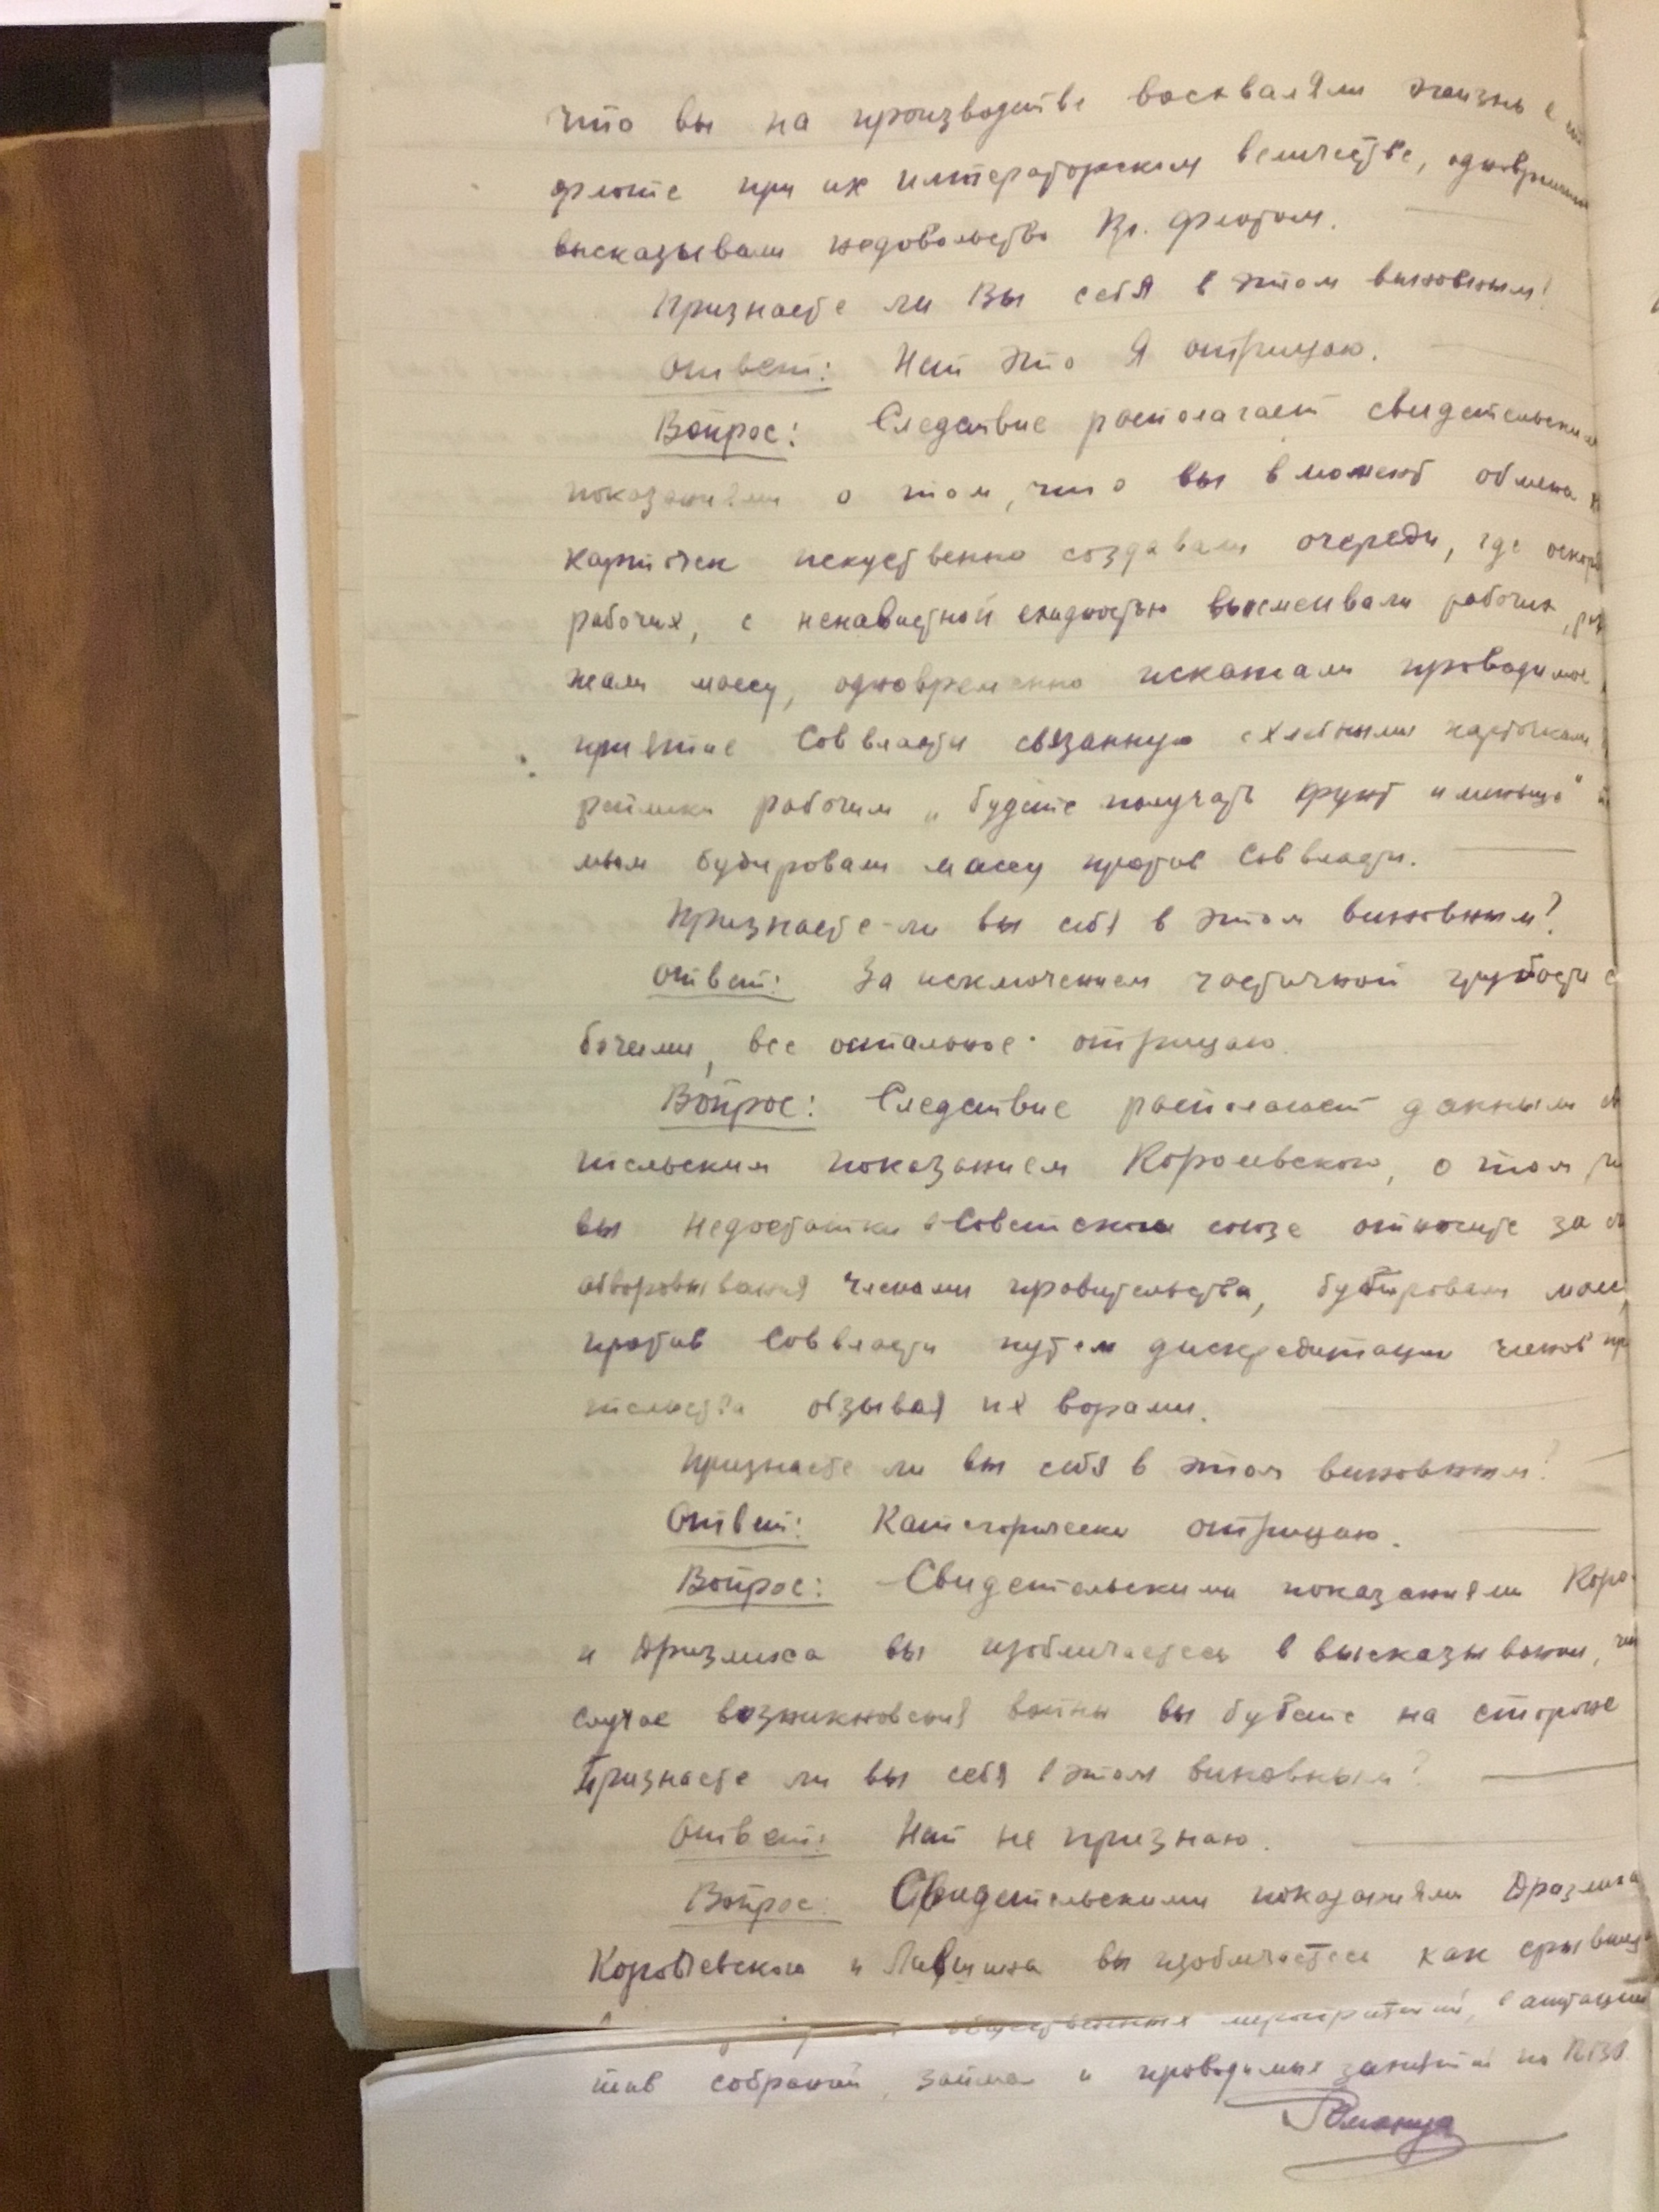 что вы на производстве восхваляли жизнь в
флоте при их императорском величестве, одновременно
высказывали недовольство Кр. флотом.
Признаете ли Вы себя в этом виновным?
Ответ: Нет это я отрицаю.
Вопрос: Следствие располагает свидетельским
показаниями о том, что вы в момент обмена
карточек искуственно создавали очереди, где
рабочих, с ненавистной ехидностью высмеивали рабочих,
жали массу, одновременно искажали проводимое
приятие Соввласти связанную с хлебными карточками
реплики рабочим „будете получать фунт и меньше"
мым будировали массу против Соввласти.
Признаете-ли вы себя в этом виновным?
Ответ: За исключением частичной грубости с
бочими, все остальное отрицаю.
Вопрос: Следствие располагает данным
тельским показанием Королевского, о том
вы недостатки в Советском союзе относите за
обворовывания членами правительства, будировали
против Соввласти путем дискредитации членов
тельства обзывая их ворами.
Признаете ли вы себя в этом виновным?
Ответ: Категорически отрицаю.
Вопрос: Свидетельскими показаниями Коро-
и вы изобличаетесь в высказывании,
случае возникновения войны вы будете на стороне
Признаете ли вы себя в этом виновным?
Ответ: Нет не признаю.
Вопрос: Свидетельскими показаниями
Королевского и вы изобличаетесь как
общественных мероприятий, в агитации
тив собраний, займов и проводимых занятий по